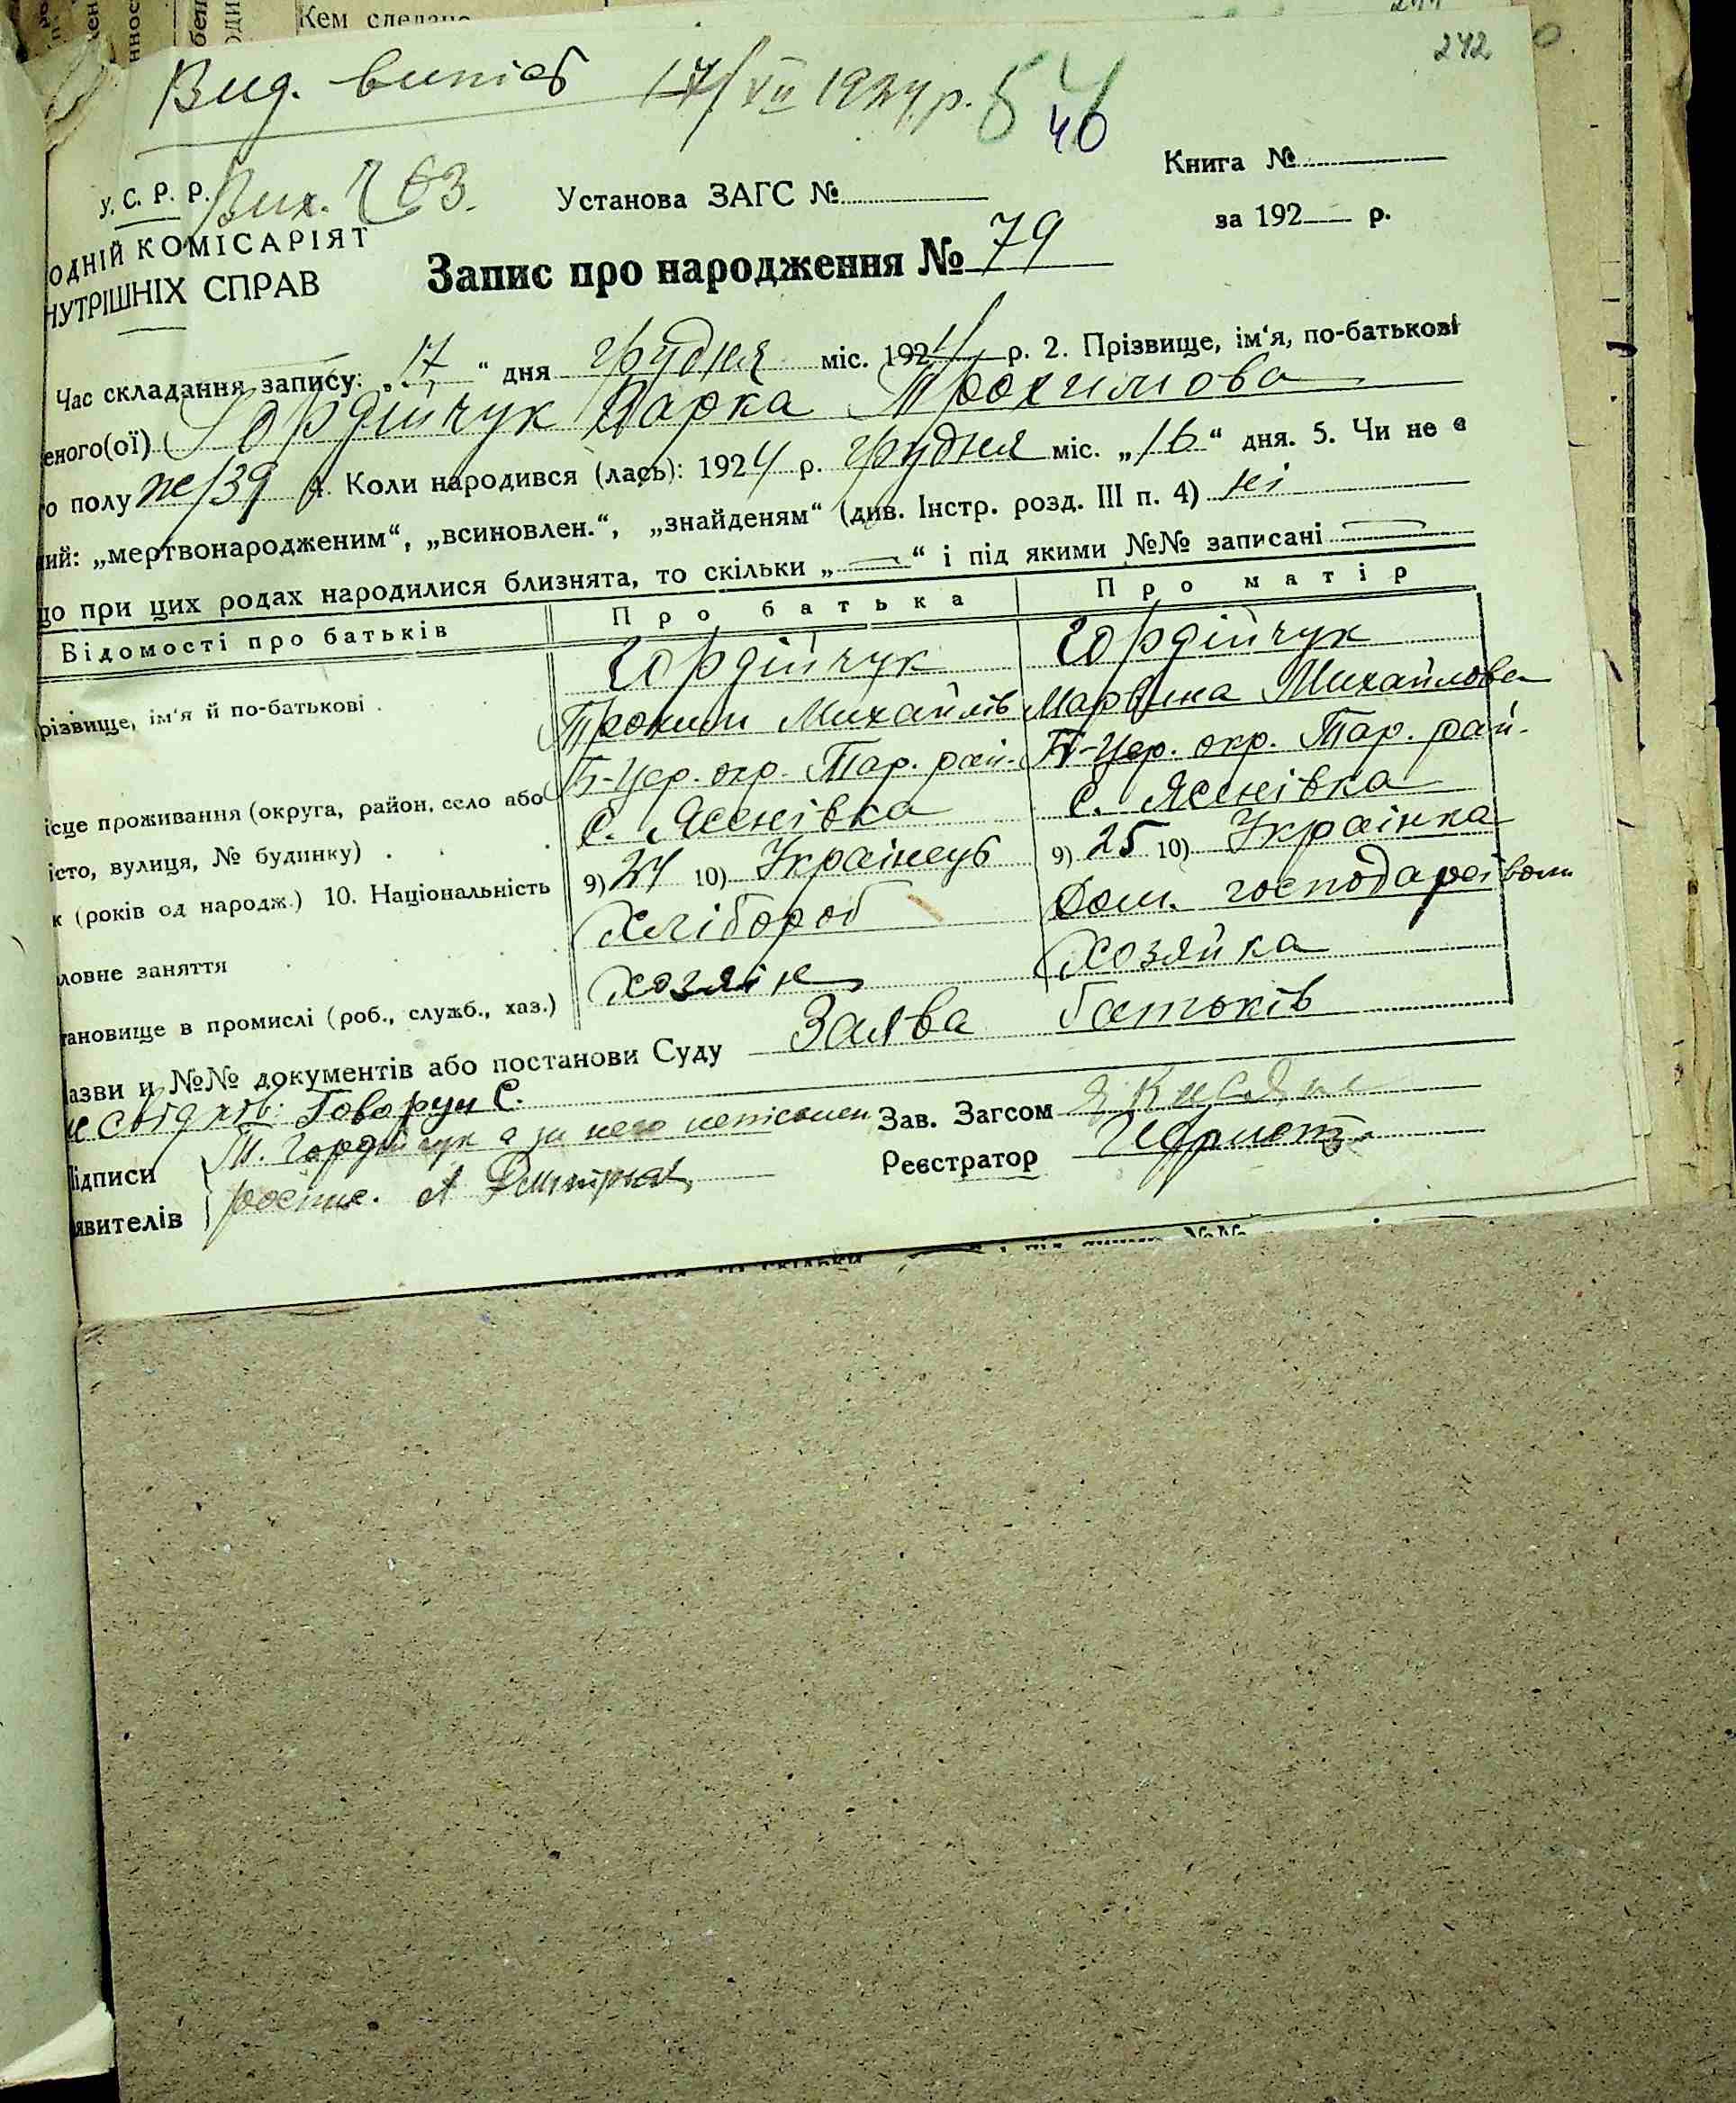 Кем сделано
242
Вид. випис 17/VII 1924 р. 54
40
У. С. Р. Р. Вих. 63. Установа ЗАГС № Книга №
ОДНІЙ КОМІСАРІЯТ за 192 р.
НУТРІШНІХ СПРАВ Запис про народження № 79
Час складання запису: „17“ дня грудня міс. 1924 р. 2. Прізвище, ім‘я, по-батькові
еного(ої) Гордійчук Варка Трохимова
о полу 4. Коли народився (лась): 1924 р. грудня міс. „16“ дня. 5. Чи не є
ий: „мертвонародженим“, „всиновлен.“, „знайденям“ (див. Інстр. розд. III п. 4) ні
що при цих родах народилися близнята, то скільки „—“ і під якими №№ записані —
Відомості про батьків Про батька Про матір
Гордійчук Гордійчук
різвище, ім‘я й по-батькові Трохим Михайлів Марвина Михайлова
Б-Цер. окр. Тар. рай. Б-Цер. окр. Тар. рай.
ісце проживання (округа, район, село або с. Ясенівка с. Ясенівка
істо, вулиця, № будинку)
к (років од народж.) 10. Національність 9) 24 10) Українець 9) 25 10) Українка
ловне заняття хлібороб Дом. господарством
тановище в промислі (роб., служб., хаз.) хозяїн хозяйка
азви и №№ документів або постанови Суду Заява батьків
свідків: Говорун С.
Підписи Т. Гордійчук а за него неписьмен Зав. Загсом
явителів росписк. А Дмитрик Реєстратор